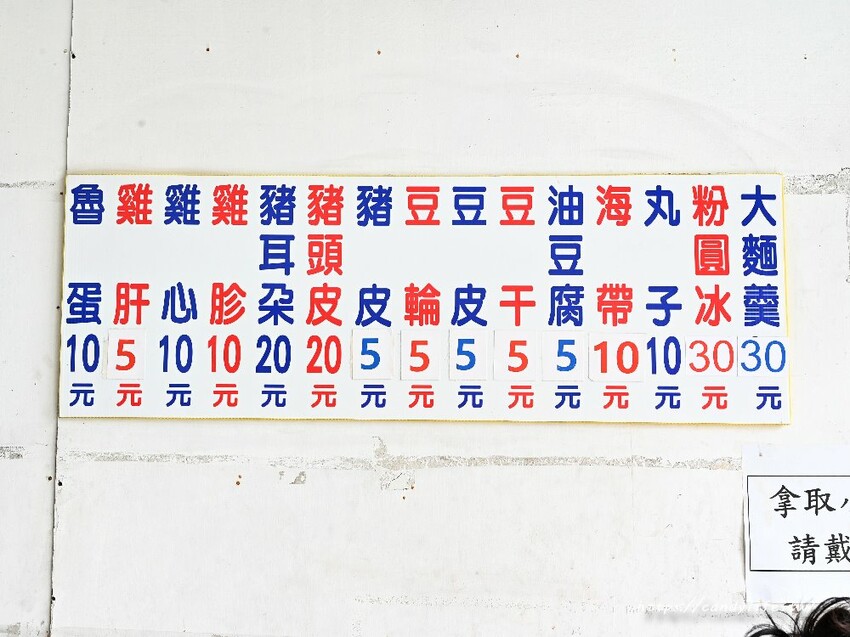 大麵羹30元
粉圓冰30元
丸子10元
海帶10元
油豆腐5元
豆干5元
豆皮5元
豆輪5元
豬皮5元
豬頭皮20元
豬耳朵20元
雞胗10元
雞心10元
雞肝5元
魯蛋10元
拿取
請戴